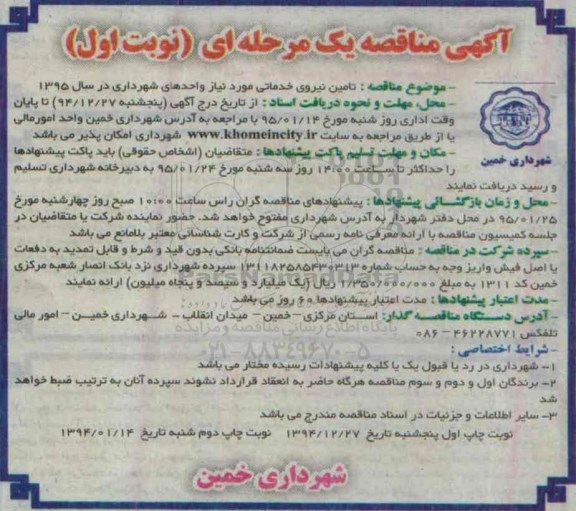 آگهی مناقصه یک مرحله ای (نوبت اول)
- موضوع مناقصه : تامین نیروی خدماتی مورد نیاز واحدهای شهرداری در سال ۱۳۹۵
- محل، مهلت و نحوه دریافت اسناد : از تاریخ درج آگهی (پنجشنبه ۹۴/۱۲/۲۷) تا پایان
وقت اداری روز شنبه مورخ ۹۵/۰۱/۱۴ با مراجعه به آدرس شهرداری خمین واحد امورمالی
یا از طریق مراجعه به سایت www.khomeincity.ir شهرداری امکان پذیر می باشد
- مکان و مهلت تسلیم پاکت پیشنهادها : متقاضیان (اشخاص حقوقی) باید پاکت پیشنهادها
را حداکثر تا ساعت ۱۴:۰۰ روز سه شنبه مورخ ۹۵/۰۱/۲۴ به دبیرخانه شهرداری تسلیم
و رسید دریافت نمایند
شهرداری خمین
- محل و زمان بازگشائی پیشنهادها : پیشنهادهای مناقصه گران راس ساعت ۱۰:۰۰ صبح روز چهارشنبه مورخ
۹۵/۰۱/۲۵ در محل دفتر شهردار به آدرس شهرداری مفتوح خواهد شد. حضور نماینده شرکت یا متقاضیان در
جلسه کمیسیون مناقصه با ارائه معرفی نامه رسمی از شرکت و کارت شناسائی معتبر بلامانع می باشد
- سپرده شرکت در مناقصه : مناقصه گران می بایست ضمانتنامه بانکی بدون قید و شرط و قابل تمدید به دفعات
یا اصل فیش واریز وجه به حساب شماره ۱۳۱۱۸۲۵۸۵۴۳۰۳۱۳ سپرده شهرداری نزد بانک انصار شعبه مرکزی
خمین کد ۱۳۱۱ به مبلغ ۱/۳۵۰/۰۰۰/۰۰۰ ریال (یک میلیارد و سیصد و پنجاه میلیون) ارائه نمایند
- مدت اعتبار پیشنهادها : مدت اعتبار پیشنهادها ۶۰ روز می باشد
- آدرس دستگاه مناقصه گذار: استان مرکزی – خمین – میدان انقلاب – شهرداری خمین – امور مالی
تلفکس ۴۶۲۲۸۷۷۱ – ۰۸۶
- شرایط اختصاصی :
۱- شهرداری در رد یا قبول یک یا کلیه پیشنهادات رسیده مختار می باشد
۲- برندگان اول و دوم و سوم مناقصه هرگاه حاضر به انعقاد قرارداد نشوند سپرده آنان به ترتیب ضبط خواهد
شد
۳- سایر اطلاعات و جزئیات در اسناد مناقصه مندرج می باشد
نوبت چاپ اول پنجشنبه تاریخ ۱۳۹۴/۱۲/۲۷ نوبت چاپ دوم شنبه تاریخ ۱۳۹۴/۰۱/۱۴
شهرداری خمین
پایگاه اطلاع رسانی مناقصه و مزایده
۰۲۱-۸۸۳۴۹۶۷۰-۵